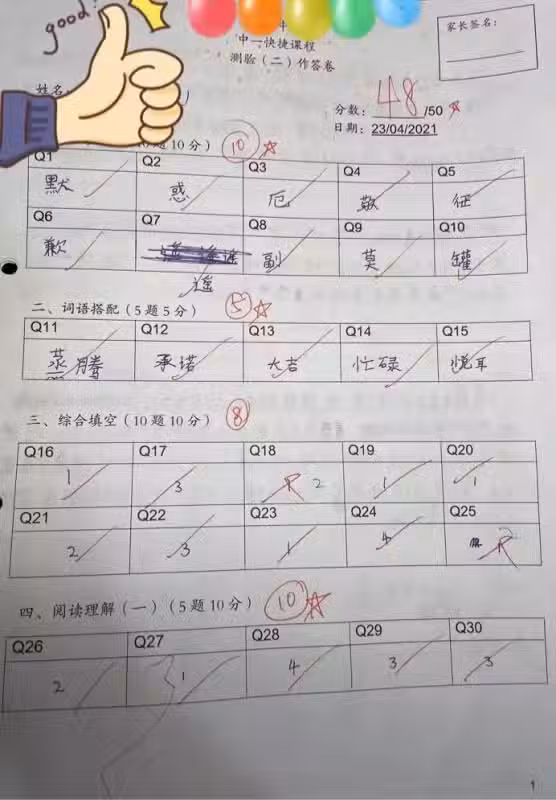 good!
家长签名:
中一快捷课程
测验(二)作答卷
姓名
分数: 48 /50
日期: 23/04/2021
10题10分) 10
Q1 Q2 Q3 Q4 Q5
默 惑 厄 敬 征
Q6 Q7 Q8 Q9 Q10
歉 遥 副 莫 罐
二、词语搭配(5题5分) 5
Q11 Q12 Q13 Q14 Q15
蒸腾 承诺 大吉 忙碌 悦耳
三、综合填空(10题10分) 8
Q16 Q17 Q18 Q19 Q20
1 3 2 1 1
Q21 Q22 Q23 Q24 Q25
2 3 1 4 2
四、阅读理解(一)(5题10分) 10
Q26 Q27 Q28 Q29 Q30
2 1 4 3 3
1